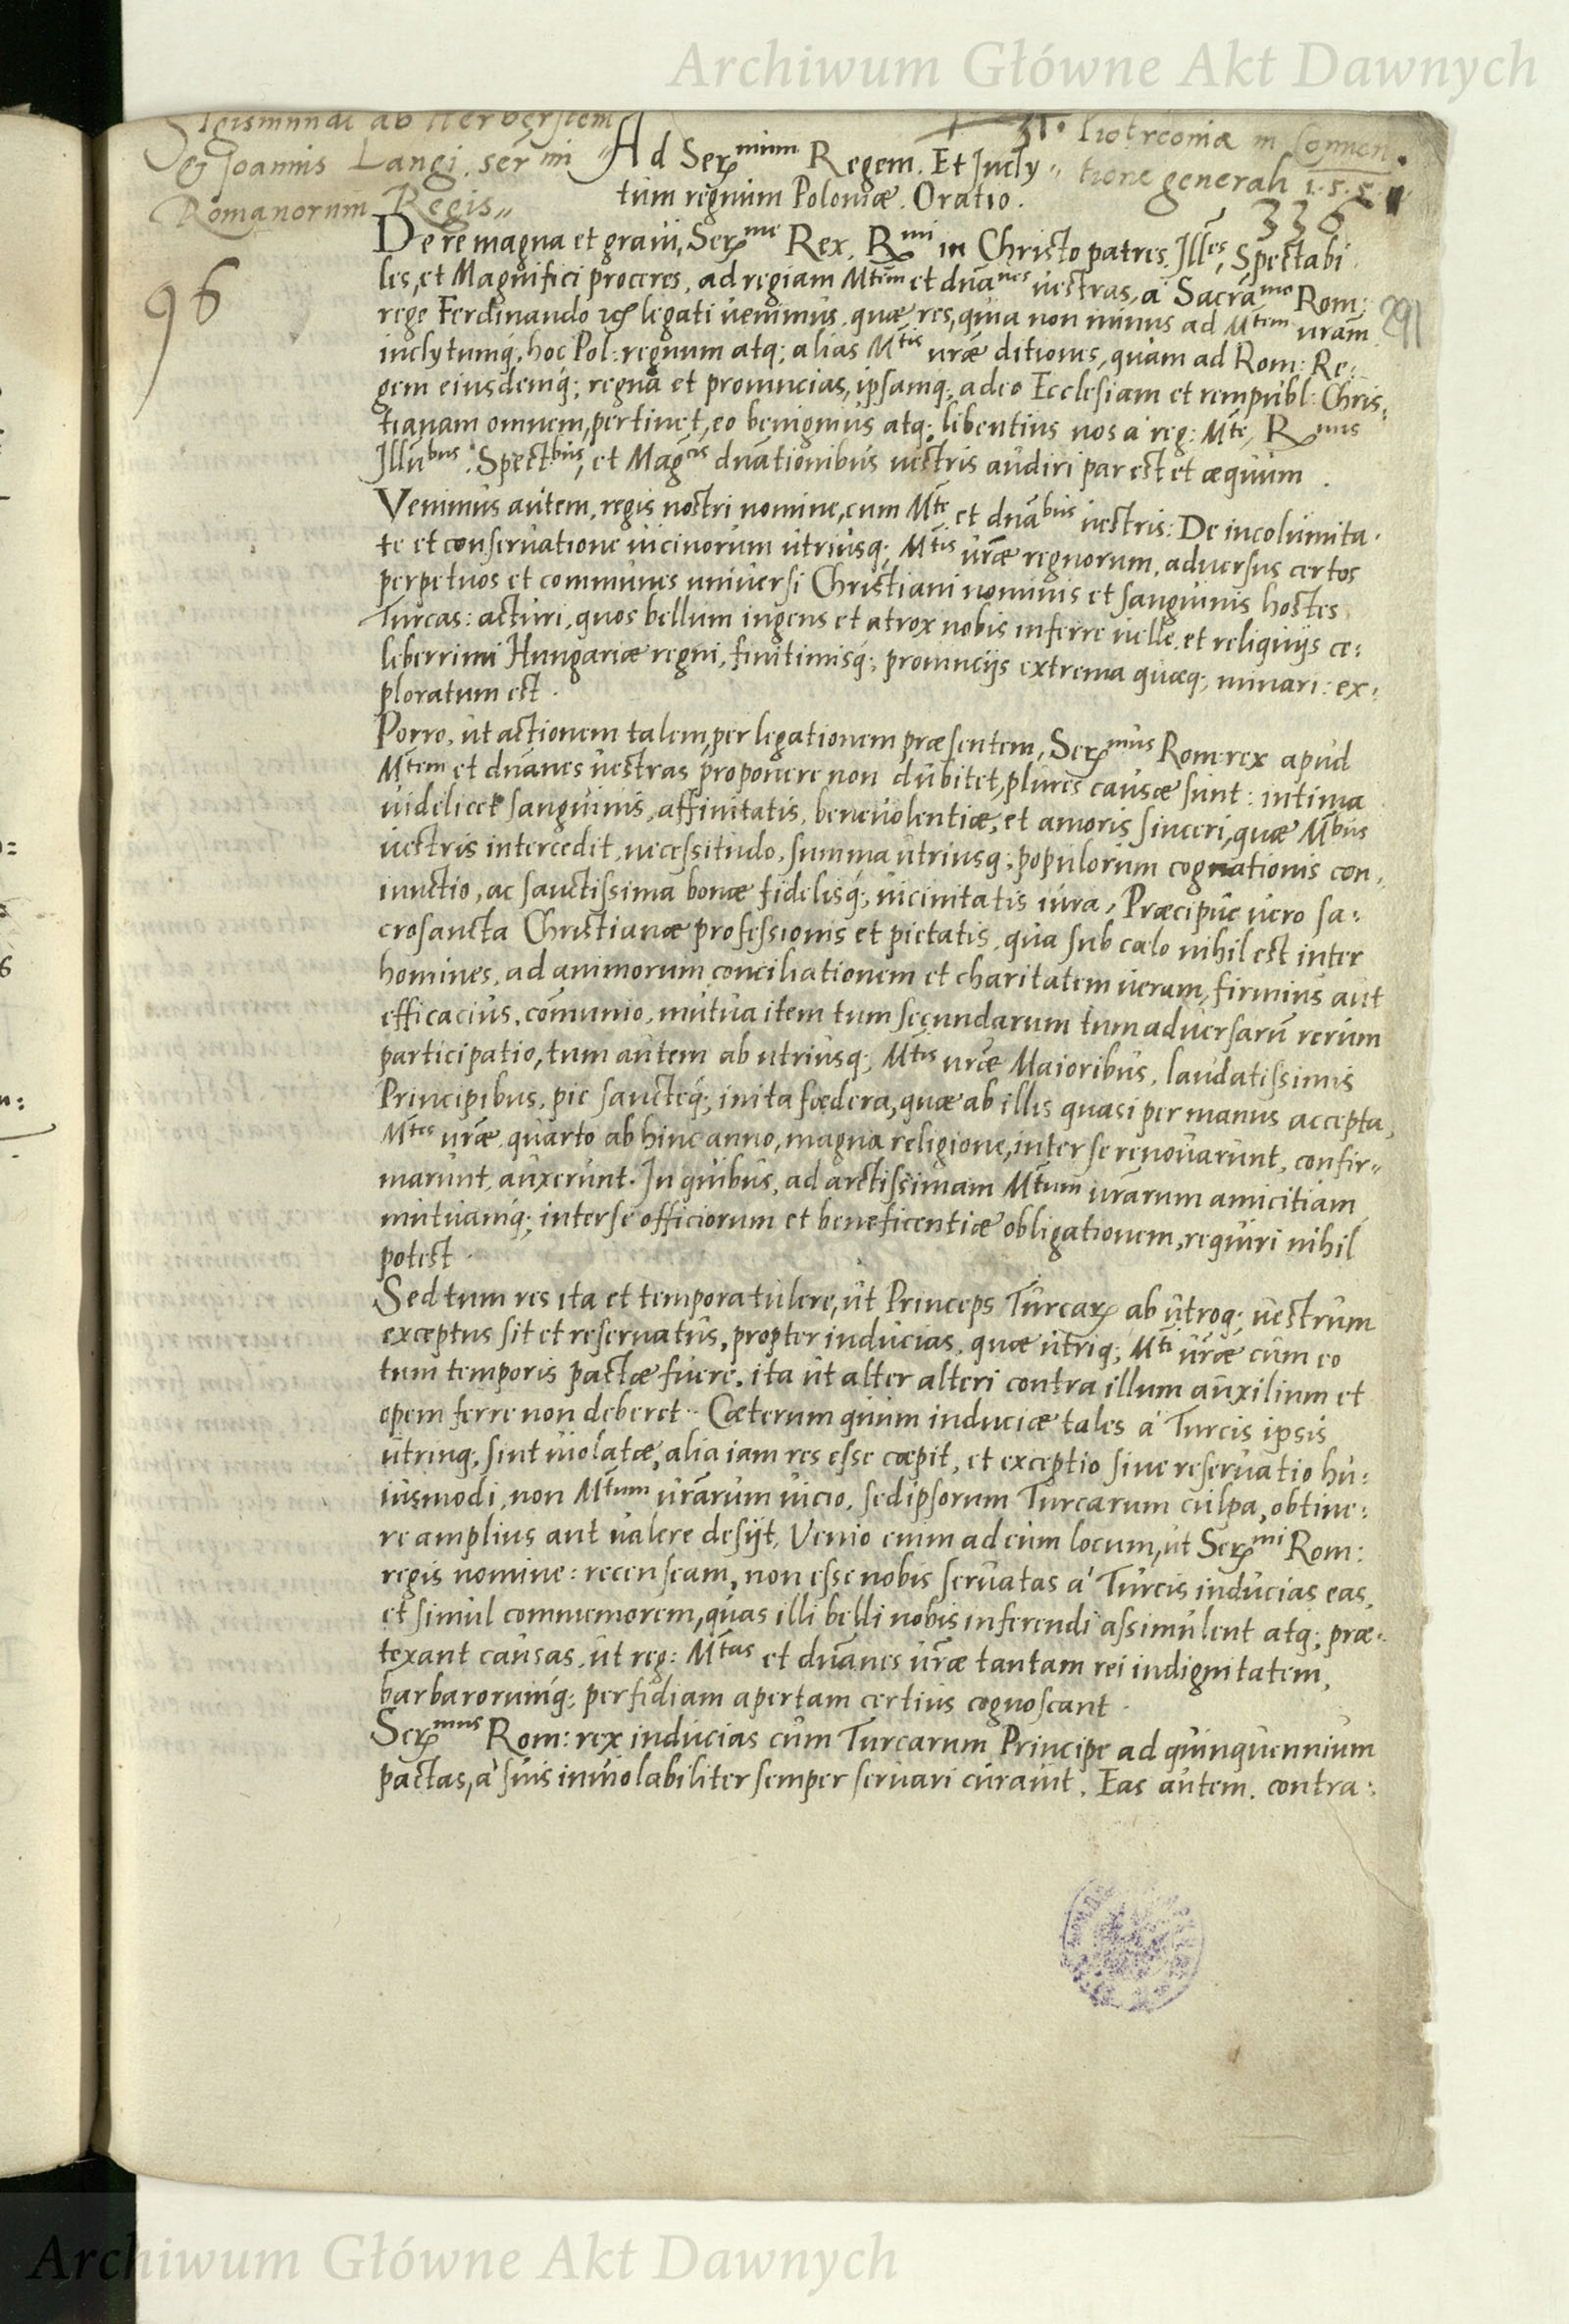 Archiwum Główne Akt Dawnych
Sigismundi ab Herberstein
& Joannis Langi. ser mi
Romanorum Regis
Ad Ser mum Regem. Et Jncly
tum regnum Poloniæ. Oratio.
31. Piotrconiæ in conuen
tione generali 1.5.5.
336
96
291
De re magna et graui, Ser me Rex, R mi in Christo patres, Jll es, Spectabi
les, et Magnifici proceres, ad regiam M tem et dnãnes uestras, à Sacra mo Rom:
rege Ferdinando legati uenimus. quæ res, quia non minus ad M tem urãm
inclytumq; hoc Pol: regnum atq; alias M tis uræ ditiones, quam ad Rom: Re:
gem eiusdemq; regna et prouincias, ipsamq; adeo Ecclesiam et rempubl: Chris:
tianam omnem, pertinet, eo benignius atq; libentius nos à reg: M te, R mis
Jllu bus Spect bus, et Mag cis dnãtionibus uestris audiri par est et æquum.
Venimus autem, regis nostri nomine, cum M te et dnã bus uestris: De incolumita:
te et conseruatione uicinorum utriusq; M tis uræ regnorum, aduersus certos
perpetuos et communes uniuersi Christiani nominis et sanguinis hostes
Turcas: acturi, quos bellum ingens et atrox nobis inferre uelle, et reliquijs ce:
leberrimi Hungariæ regni, finitimisq; prouincijs extrema quæq; minari: ex:
ploratum est.
Porro, ut actionem talem, per legationem præsentem, Ser mus Rom: rex apud
M tem et dnãnes uestras proponere non dubitet, plures causæ sunt: intima
uidelicet sanguinis, affinitatis, beneuolentiæ, et amoris sinceri, quæ M bus
uestris intercedit, necessitudo, summa utriusq; populorum cognationis con,
iunctio, ac sanctissima bonæ fidelisq; uicinitatis iura, Præcipue uero sa:
crosancta Christianæ professionis et pietatis, qua sub cælo nihil est inter
homines, ad animorum conciliationem et charitatem ueram, firmius aut
efficacius, com̃unio, mutua item tum secundarum tum aduersarũ rerum
participatio, tum autem ab utriusq; M tis uræ Maioribus, laudatissimis
Principibus, pie sancteq; inita fœdera, quæ ab illis quasi per manus accepta,
M tes uræ, quarto ab hinc anno, magna religione, inter se renouarunt, confir
marunt, auxerunt. Jn quibus, ad arctissimam M tum urãrum amicitiam
mutuamq; inter se officiorum et beneficentiæ obligationem, requiri nihil
potest.
Sed tum res ita et tempora tulere, ut Princeps Turcar ab utroq; uestrum
exceptus sit et reseruatus, propter inducias, quæ utriq; M ti uræ cum eo
tum temporis pactæ fuere, ita ut alter alteri contra illum auxilium et
opem ferre non deberet. Cæterum quum induciæ tales à Turcis ipsis
utrinq; sint uiolatæ, alia iam res esse cœpit, et exceptio siue reseruatio hu:
iusmodi, non M tum urãrum uicio, sed ipsorum Turcarum culpa, obtine:
re amplius aut ualere desijt. Venio enim ad eum locum, ut Ser mi Rom:
regis nomine: recenseam, non esse nobis seruatas à Turcis inducias eas,
et simul commemorem, quas illi belli nobis inferendi assimulent atq; præ:
texant causas, ut reg: M tas et dnãnes uræ tantam rei indignitatem,
barbarorumq; perfidiam apertam certius cognoscant.
Ser mus Rom: rex inducias cum Turcarum Principe ad quinquennium
pactas, à suis inuiolabiliter semper seruari curauit. Eas autem. contra:
Archiwum Główne Akt Dawnych